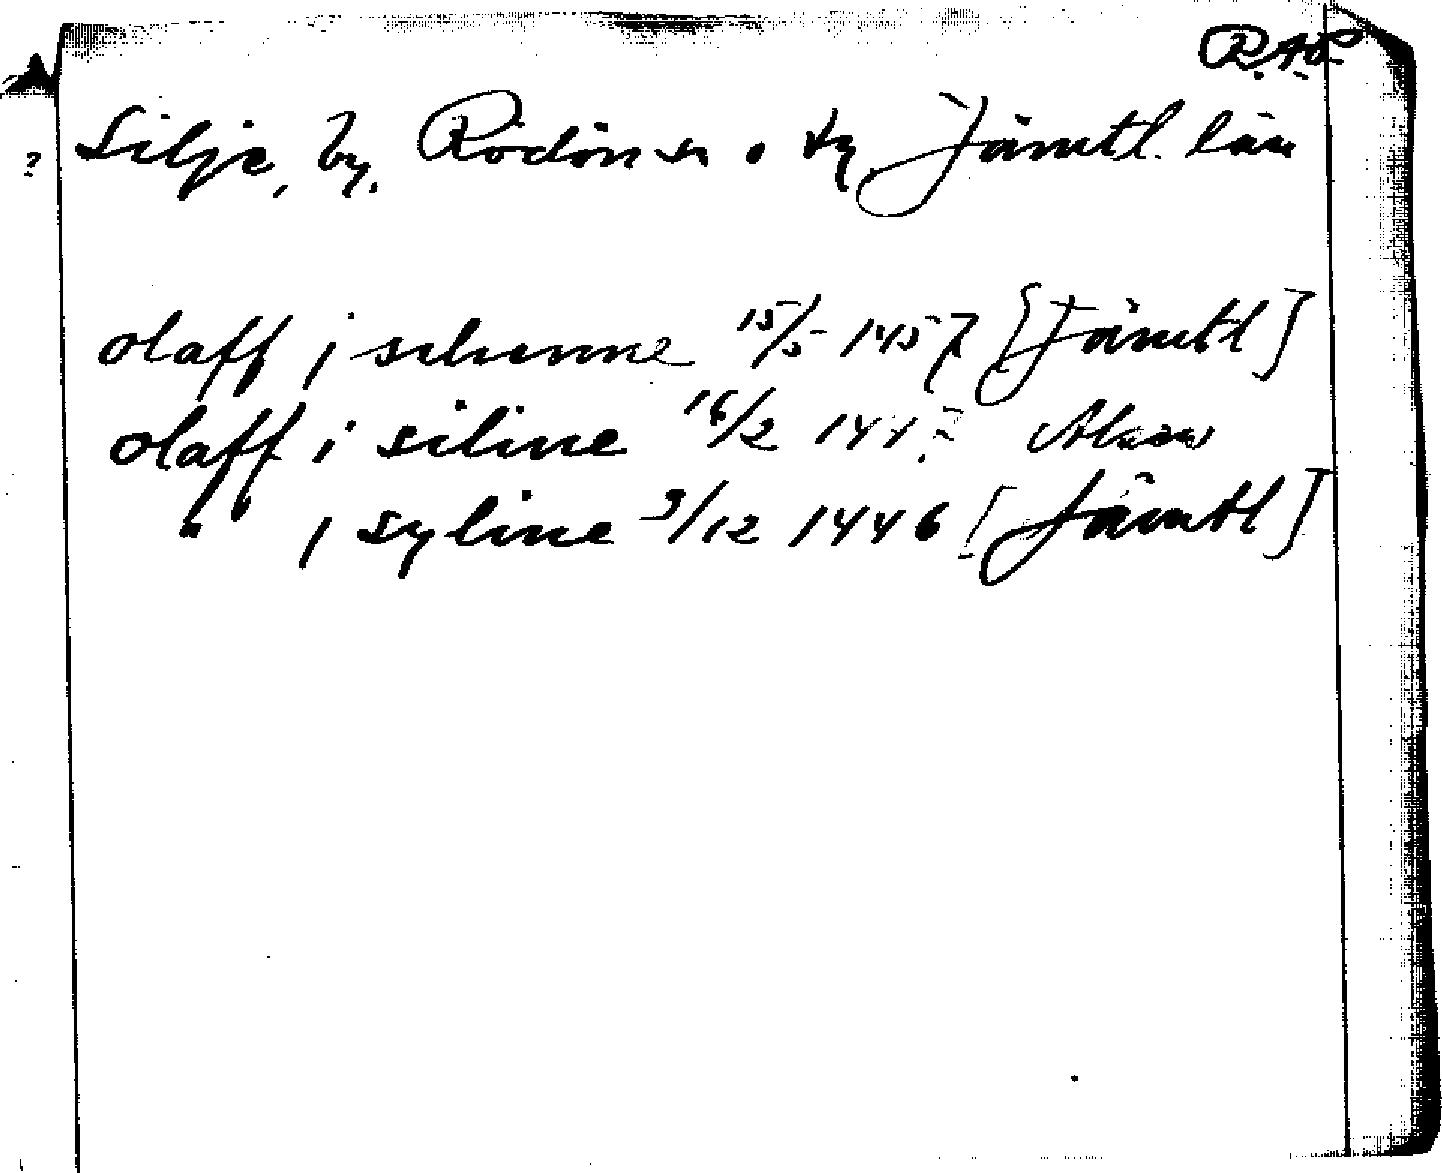 R.A.P.
? Silje, by, Rödöns sn o tg Jämtl. län
olaff j silinne 15/5 1457 [Jämtl]
olaff i siline 16/2 144
" " j syline 3/12 1446 [Jämtl]